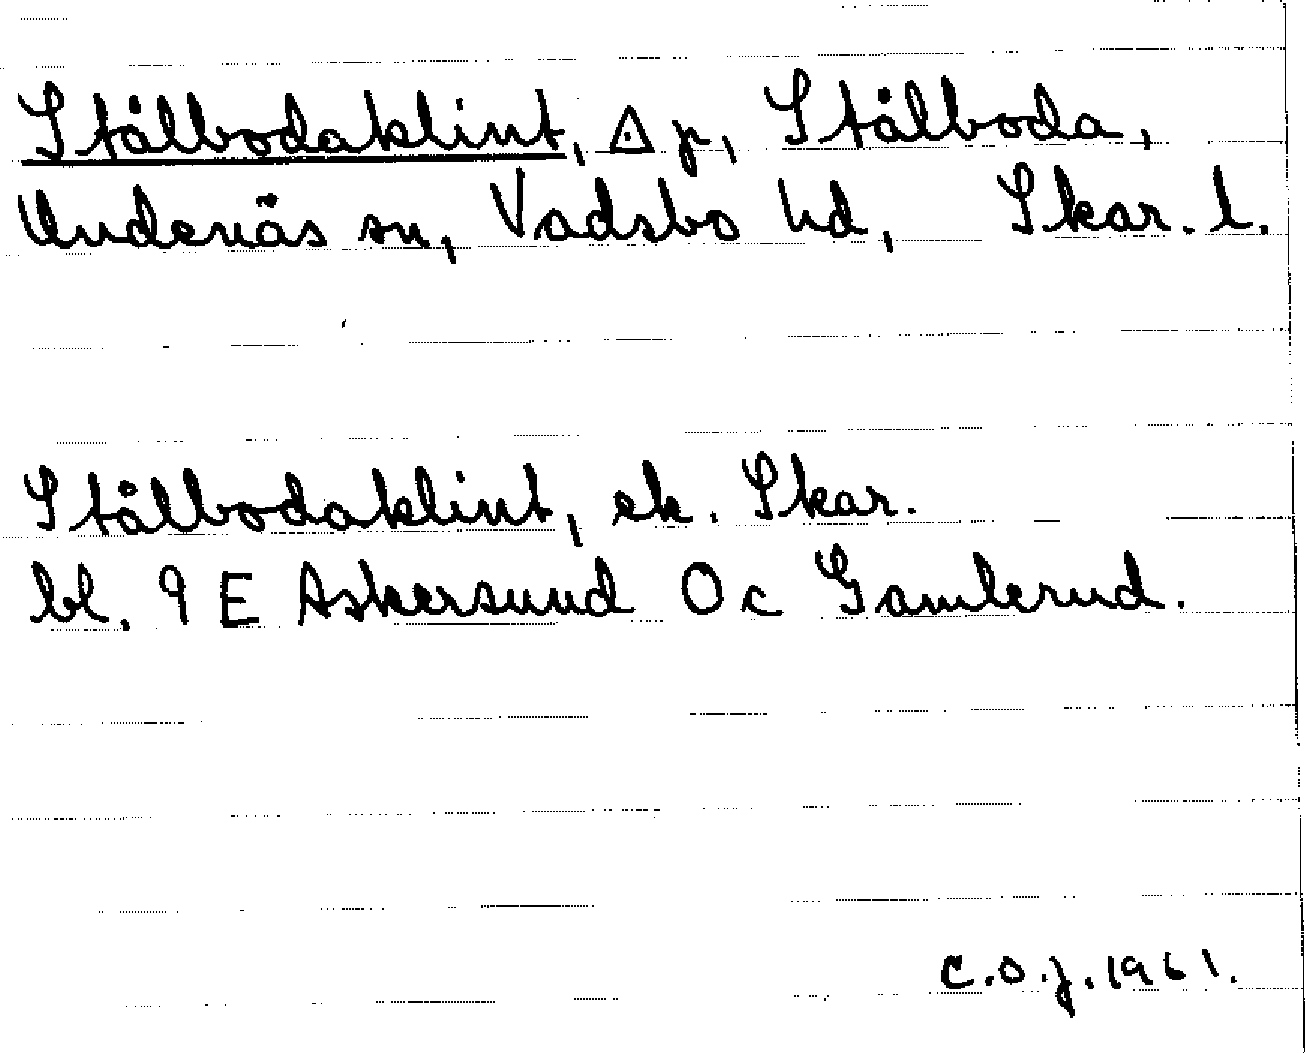 Stålbodaklint, △ p, Stålboda,
Undenäs sn, Vadsbo hd, Skar. l.
Stålbodaklint, ek. Skar.
bl. 9 E Askersund 0 c Gamlerud.
C.O.J. 1961.